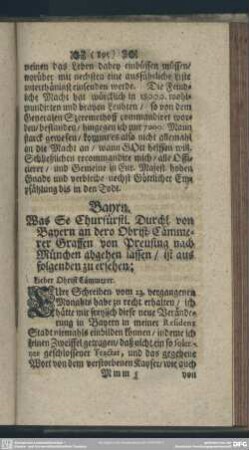 meinen das Leben dabey einbüssen müssen/
worüber mit nechsten eine ausführliche Liste
unterthänigst einsenden werde. Die Feind-
liche Macht hat würcklich in 18000. wohl-
mundirten und braven Leuthen / so von dem
Generalen Szeremethoff commandiret wor-
den / bestanden / hingegen ich nur 7000. Mann
starck gewesen /
die Macht an / wann GOtt helffen will.
Schließlichen recommandire mich / alle Offi-
cierer / und Gemeine in Eur. Majest. hohen
Gnade und verbleibe nechst Göttlicher Em-
pfählung bis in den Todt.
Bayrn.
Was Se Churfürstl. Durchl. von
Bayern an dero Obrist-Cämme-
rer Graffen von Preusing nach
München abgehen lassen / ist aus
folgenden zu ersehen:
Lieber Obrist Cämmerer.
EUre Schreiben vom 13. vergangenen
Monaths habe zu recht erhalten / ich
hätte mir freylich diese neue Verände-
rung in Bayern in meiner Residenz
Stadt niemahls einbilden können / indeme ich
keinen Zweiffel getragen / daß nicht ein so solen-
ner geschlossener Tractat, und das gegebene
Wort von dem verstorbenen Kayser / wie auch
Mmm von